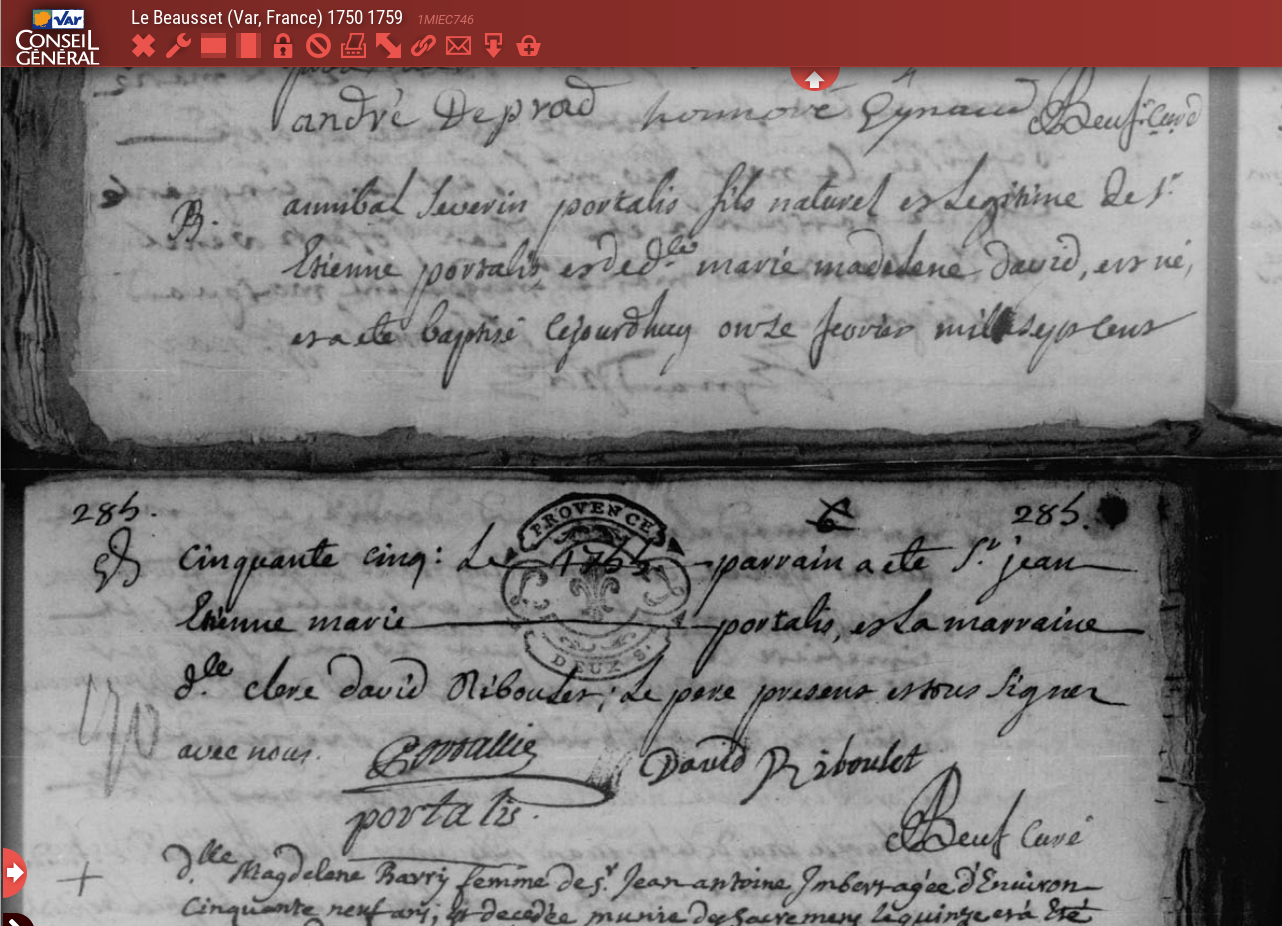 Le Beausset (Var, France) 1750 1759 1MIEC746
VAR
CONSEIL
GÉNÉRAL
andré Deprad honnoré Eynaud Beuf Curé
B. annibal Severin portalis fils naturel et Legitime de Sr
Etienne portalis et de dlle marie madelene david, est né,
et a ete baptisé cejourdhuy onze fevrier mille sept cent
285. 6 285.
cinquante cinq: Le 1755 parrain a ete Sr jean
PROVENCE
DEUX S.
Etienne marie portalis, et La marraine
dlle clere david Riboulet; Le pere present et tous signer
avec nous. Portallis David Riboulet
portalis.
Beuf Curé
dlle Magdelene Barry femme de sr Jean antoine Imbert agée d'Enuiron
Cinquante neuf ans; est decedée munie des Sacremens le quinze et a Eté